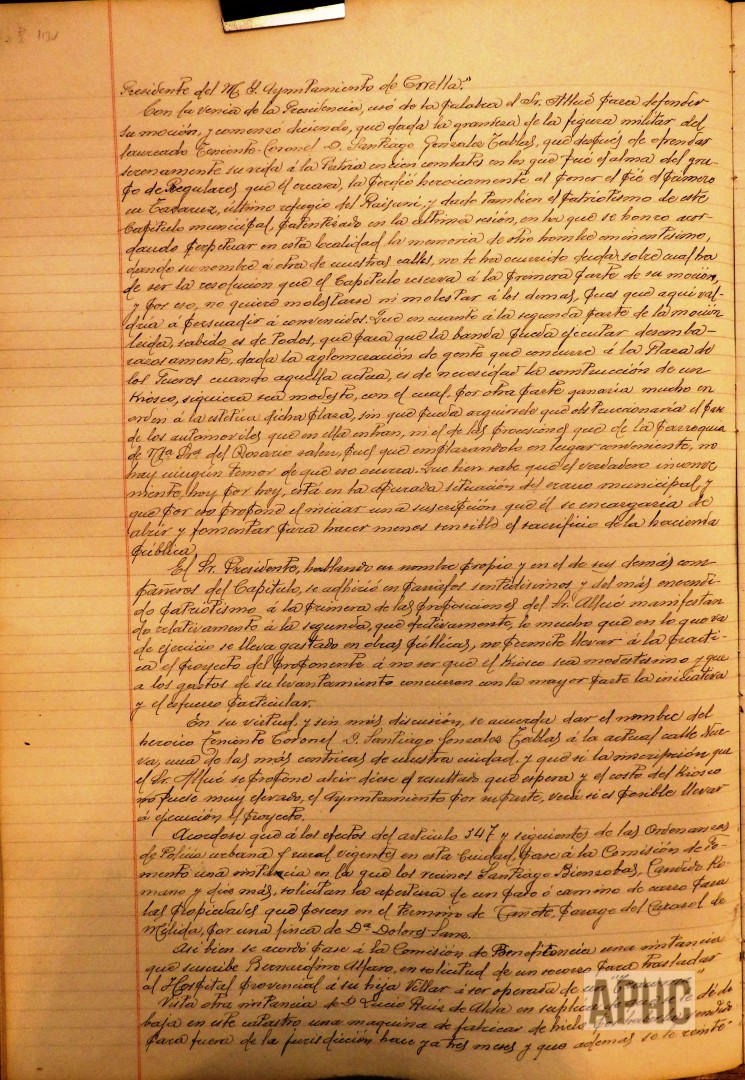 Presidente del M. I. Ayuntamiento de Corella."
Con la venia de la Presidencia, usó de la palabra el Sr. Allué para defender
su moción, y comenzó diciendo, que dada la grandeza de la figura militar del
laureado Teniente-Coronel D. Santiago Gonzalez Tablas, que después de ofrendar
serenamente su vida á la Patria en cien combates en los que fué el alma del gru-
po de Regulares que él creara, la perdió heroicamente al poner el pié el primero
en Tazarut, último refugio del Raisuni, y dado tambien el patriotismo de este
Capítulo municipal, patentizado en la última sesión, en la que se honró acor-
dando perpetuar en esta localidad la memoria de otro hombre eminentísimo,
dando su nombre á otra de nuestras calles, no le ha ocurrido dudar sobre cual ha
de ser la resolución que el Capítulo reserva á la primera parte de su moción,
y por eso, no quiere molestarse ni molestar á los demas, pues que aqui val-
dria á persuadir á convencidos. Que en cuanto á la segunda parte de la moción
leida, sabido es de todos, que para que la banda pueda ejecutar desemba-
razosamente, dada la aglomeración de gente que concurre á la Plaza de
los Fueros cuando aquella actua, es de necesidad la construcción de un
Kiosco, siquiera sea modesto, con el cual, por otra parte ganaria mucho en
orden á la estetica dicha plaza, sin que pueda arguirse de que obstruccionaria el pase
de los automoviles que en ella entran, ni el de las procesiones que de la parroquia
de Ntra. Sra. del Rosario salen, pues que emplazandolo en lugar conveniente, no
hay ningún temor de que eso ocurra. Que bien sabe que el verdadero inconve-
niente, hoy por hoy, está en la apurada situación del erario municipal, y
que por eso propone el iniciar una suscripción que él se encargaria de
abrir y fomentar para hacer menos sensible el sacrificio de la hacienda
pública.
El Sr. Presidente, hablando en nombre propio y en el de sus demás com-
pañeros del Capítulo, se adhirió en parrafos sentidisimos y del más encendi-
do patriotismo á la primera de las proposiciones del Sr. Allué manifestan
do relativamente á la segunda, que efectivamente, lo mucho que en lo que va
de ejercicio se lleva gastado en obras públicas, no permite llevar á la practi-
ca el proyecto del proponente á no ser que el Kiosco sea modestisimo y que
a los gastos de su levantamiento concurran con la mayor parte la iniciativa
y el esfuerzo particular.
En su virtud, y sin más discusión, se acuerda dar el nombre del
heroico Teniente Coronel D. Santiago Gonzalez Tablas á la actual calle Nue-
va, una de las más centricas de nuestra ciudad, y que si la inscripción que
el Sr. Allué se propone abrir diese el resultado que espera y el costo del Kiosco
no fuese muy elevado, el Ayuntamiento por su parte, verá si es posible llevar
á ejecución el proyecto.
Acordose que á los efectos del artículo 347 y siguientes de las Ordenanzas
de Policía urbana y rural vigentes en esta Ciudad, pase á la Comisión de Fo-
mento una instancia en la que los vecinos Santiago Bienzobas, Candido Ro-
mano y dos más, solicitan la apertura de un paso ó camino de carro para
las propiedades que poseen en el termino de, parage del Carasol de
Mélida, por una finca de Dª Dolores Sanz.
Asi bien se acordó pase á la Comisión de Beneficencia una instancia
que suscribe Bernardino Alfaro, en solicitud de un socorro para trasladar
al Hospital provincial á su hija Villar á ser operada de un
Vista otra instancia de D. Lucio Ruiz de Alda en suplica de que se le dé de
baja en este catastro una maquina de fabricar de hielo vendido
para fuera de la jurisdicción hace ya tres meses y que además se le reinte-
APHC